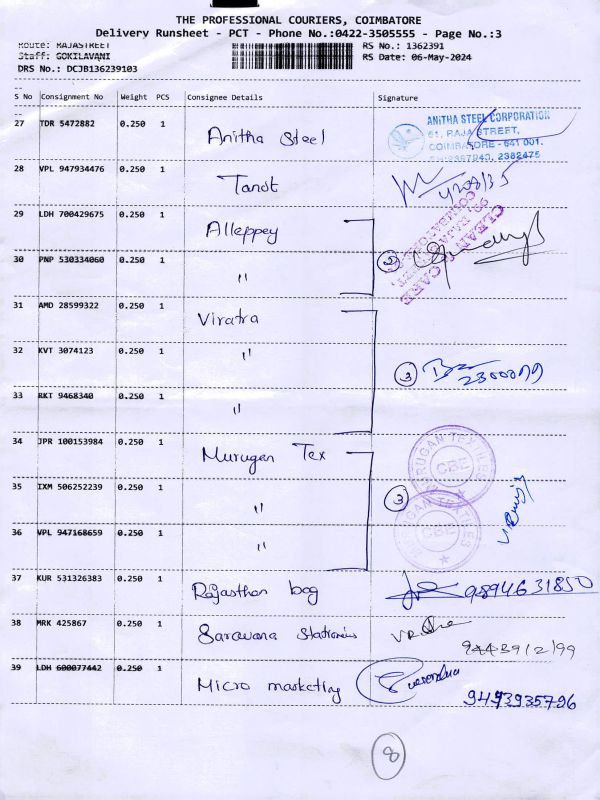 THE PROFESSIONAL COURIERS, COIMBATORE
Delivery Runsheet - PCT - Phone No.:0422-3505555 - Page No.:3
Route: RAJASTREET RS No.: 1362391
Staff: GOKILAVANI RS Date: 06-May-2024
DRS No.: DCJB136239103
S No Consignment No Weight PCS Consignee Details Signature
27 TDR 5472882 0.250 1 Anitha Steel
ANITHA STEEL CORPORATION
61, RAJA STREET,
COIMBATORE - 641 001.
2382475
28 VPL 947934476 0.250 1
29 LDH 700429675 0.250 1 Alleppey
CLEAN CARE
30 PNP 530334060 0.250 1 " 2
31 AMD 28599322 0.250 1 Viratra
32 KVT 3074123 0.250 1 " 3
33 RKT 9468340 0.250 1 "
34 JPR 100153984 0.250 1 Murugan Tex
MURUGAN TEXTILES
CBE
35 IXM 506252239 0.250 1 " 3
MURUGAN TEXTILES
CBE
36 VPL 947168659 0.250 1 "
37 KUR 531326383 0.250 1 Rajasthan bag 9894631850
38 MRK 425867 0.250 1 Saravana Stationeris
39 LDH 600077442 0.250 1 Micro marketing
8